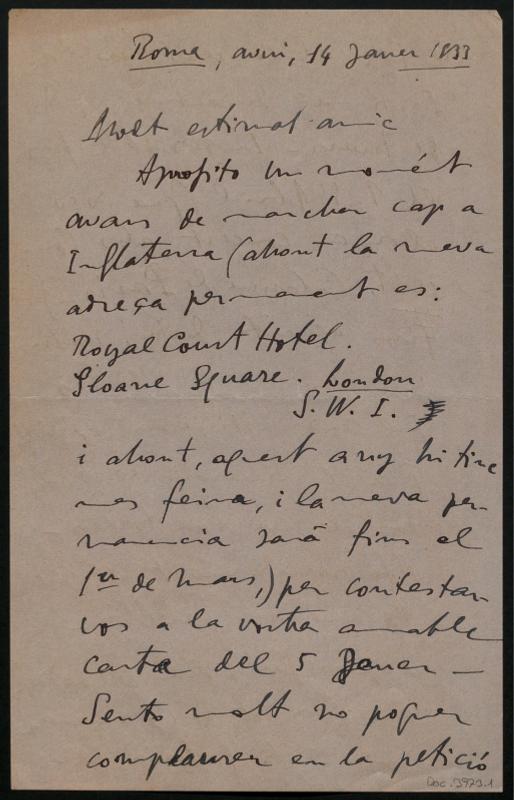 Roma, avui, 14 Janer 1933
Molt estimat amic
Aprofito un momént
avans de marchar cap a
Inglaterra (ahont la meva
adreça permanent es:
Royal Court Hotel.
Sloane Square. London
S. W. I.
i ahont, aquest any hi tinc
mes feina, i la meva per-
manencia sará fins el
1er de Mars,) per contestar-
vos a la vostra amable
carta del 5 Janer —
Sento molt no poguer
complaurer en la petició
Doc. 3973.1